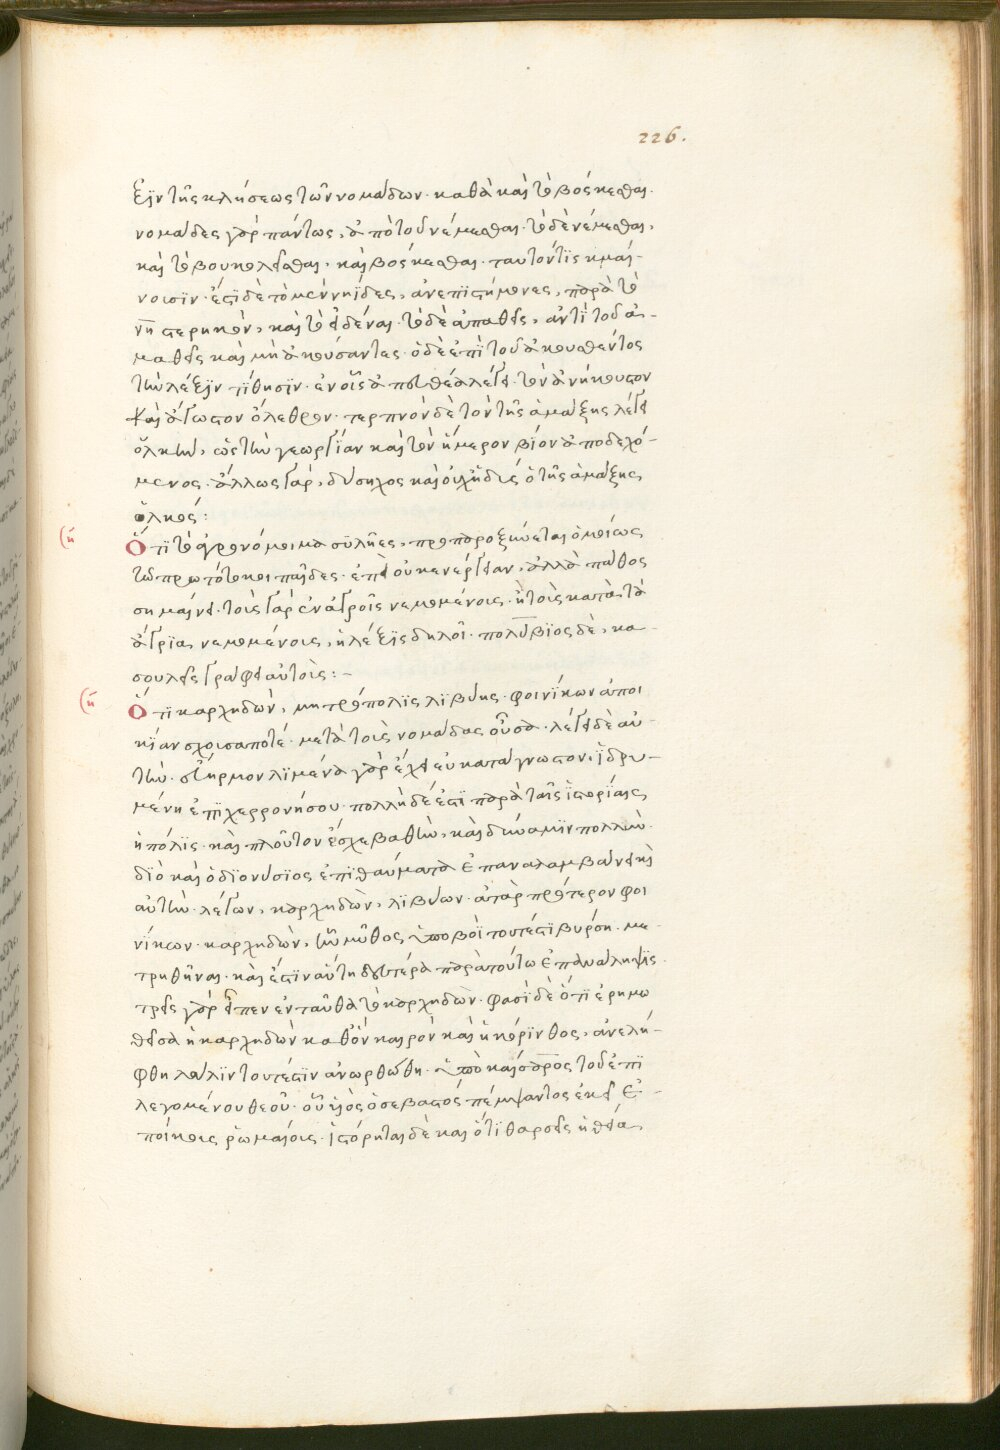 226.
ἕξιν τῆς κλήσεως τῶν νομάδων· καθὰ καὶ τὸ βόσκεσθαι·
νομάδες γὰρ πάντως, ἀπὸ τοῦ νέμεσθαι· τὸ δὲ νέμεσθαι,
καὶ τὸ βουκολεῖσθαι, καὶ βόσκεσθαι· ταυτόν τϊ σημαί-
νουσϊν· ἔστϊ δὲ τὸ μὲν νηΐδες, ἀνεπιστήμονες, παρὰ τὸ
νη στερητικὸν, καὶ τὸ εἰδέναι· τὸ δὲ ἀπαθεῖς, ἀντὶ τοῦ ἀ-
μαθεῖς καὶ μὴ ἀκούσαντες· ὁ δὲ ἐπὶ τοῦ ἀκουσθέντος
τὴν λέξϊν τίθησϊν· ἐν οἷς ἀποθέσθαι λέγει· τὸν ἀνήκουστον
καὶ ἄγωστον ὄλεθρον· τερπνὸν δὲ τὸν τῆς ἁμάξης λέγει
ὁλκὸν, ὡς τὴν γεωργίαν καὶ τὸν ἥμερον βίον ἀποδεχό-
μενος· ἄλλως γὰρ, δύσηχος καὶ οὐχ ἡδὺς ὁ τῆς ἁμάξης,
ὁλκός:
(ση
Ὅτϊ τὸ ἀγρονόμοι μασσυλῆες, προπαροξύνεται ὁμοίως
τῷ πρωτότοκοι παῖδες· ἐπεὶ οὐκ ἐνέργειαν, ἀλλὰ πάθος
σημαίνει· τοὺς γὰρ ἐν ἀγροῖς νεμομένους· ἢ τοὺς κατὰ τὰ
ἄγρια νεμομένους, ἡ λέξϊς δηλοῖ· πολύβϊος δὲ, κα-
σουλεῖς γράφει αὐτοὺς:-
(ση
Ὅτϊ καρχηδὼν, μητρόπολϊς λϊβύης· φοινίκων ἀποι
κίαν σχοῦσα ποτέ· μετὰ τοὺς νομάδας οὖσα· λέγει δὲ αὐ-
τὴν· εὔορμον λϊμένα γὰρ ἔχει εὐκατάγνωστον· ἱδρυ-
μένη ἐπὶ χερρονήσου· πολλὴ δέ ἐστϊ παρὰ ταῖς ἱστορίαις
ἡ πόλϊς· καὶ πλοῦτον ἔσχε βαθὺν, καὶ δύναμϊν πολλὴν·
διὸ καὶ ὁ διονύσϊος ἐπϊθαύματα ἐπαναλαμβάνει καὶ
αὐτὴν· λέγων, καρχηδὼν, λιβύων· ἀτὰρ πρότερον φοι
νίκων· καρχηδὼν, ἣν μῦθος ὑπὸ βοῒ τουτέστϊ βύρσῃ· με-
τρηθῆναι· καὶ ἔστϊν αὕτη δευτέρα παρὰ τούτω ἐπανάληψϊς·
τρεῖς γὰρ εἶπεν ἐνταῦθα τὸ καρχηδὼν· φασὶ δὲ ὅτϊ ἐρημω
θεῖσα ἡ καρχηδὼν καθ' ὃν καιρὸν καὶ ἡ κόρϊνθος, ἀνελή-
φθη πάλϊν τουτέστϊν ἀνωρθώθη· ὑπὸ καίσαρος τοῦ ἐπϊ
λεγομένου θεοῦ· οὗ υἱὸς ὁ σεβαστός πέμψαντος ἐκεῖ ἐ-
ποίκους ῥωμαίους· ἱστόρηται δὲ καὶ ὅτϊ θαρσεῖς ἡ θεά,